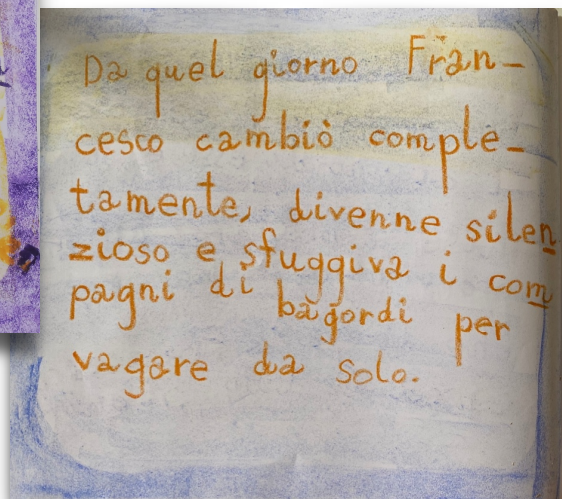 Da quel giorno Fran-
cesco cambiò comple-
tamente, divenne silen
zioso e sfuggiva i com
pagni di bagordi per
vagare da solo.